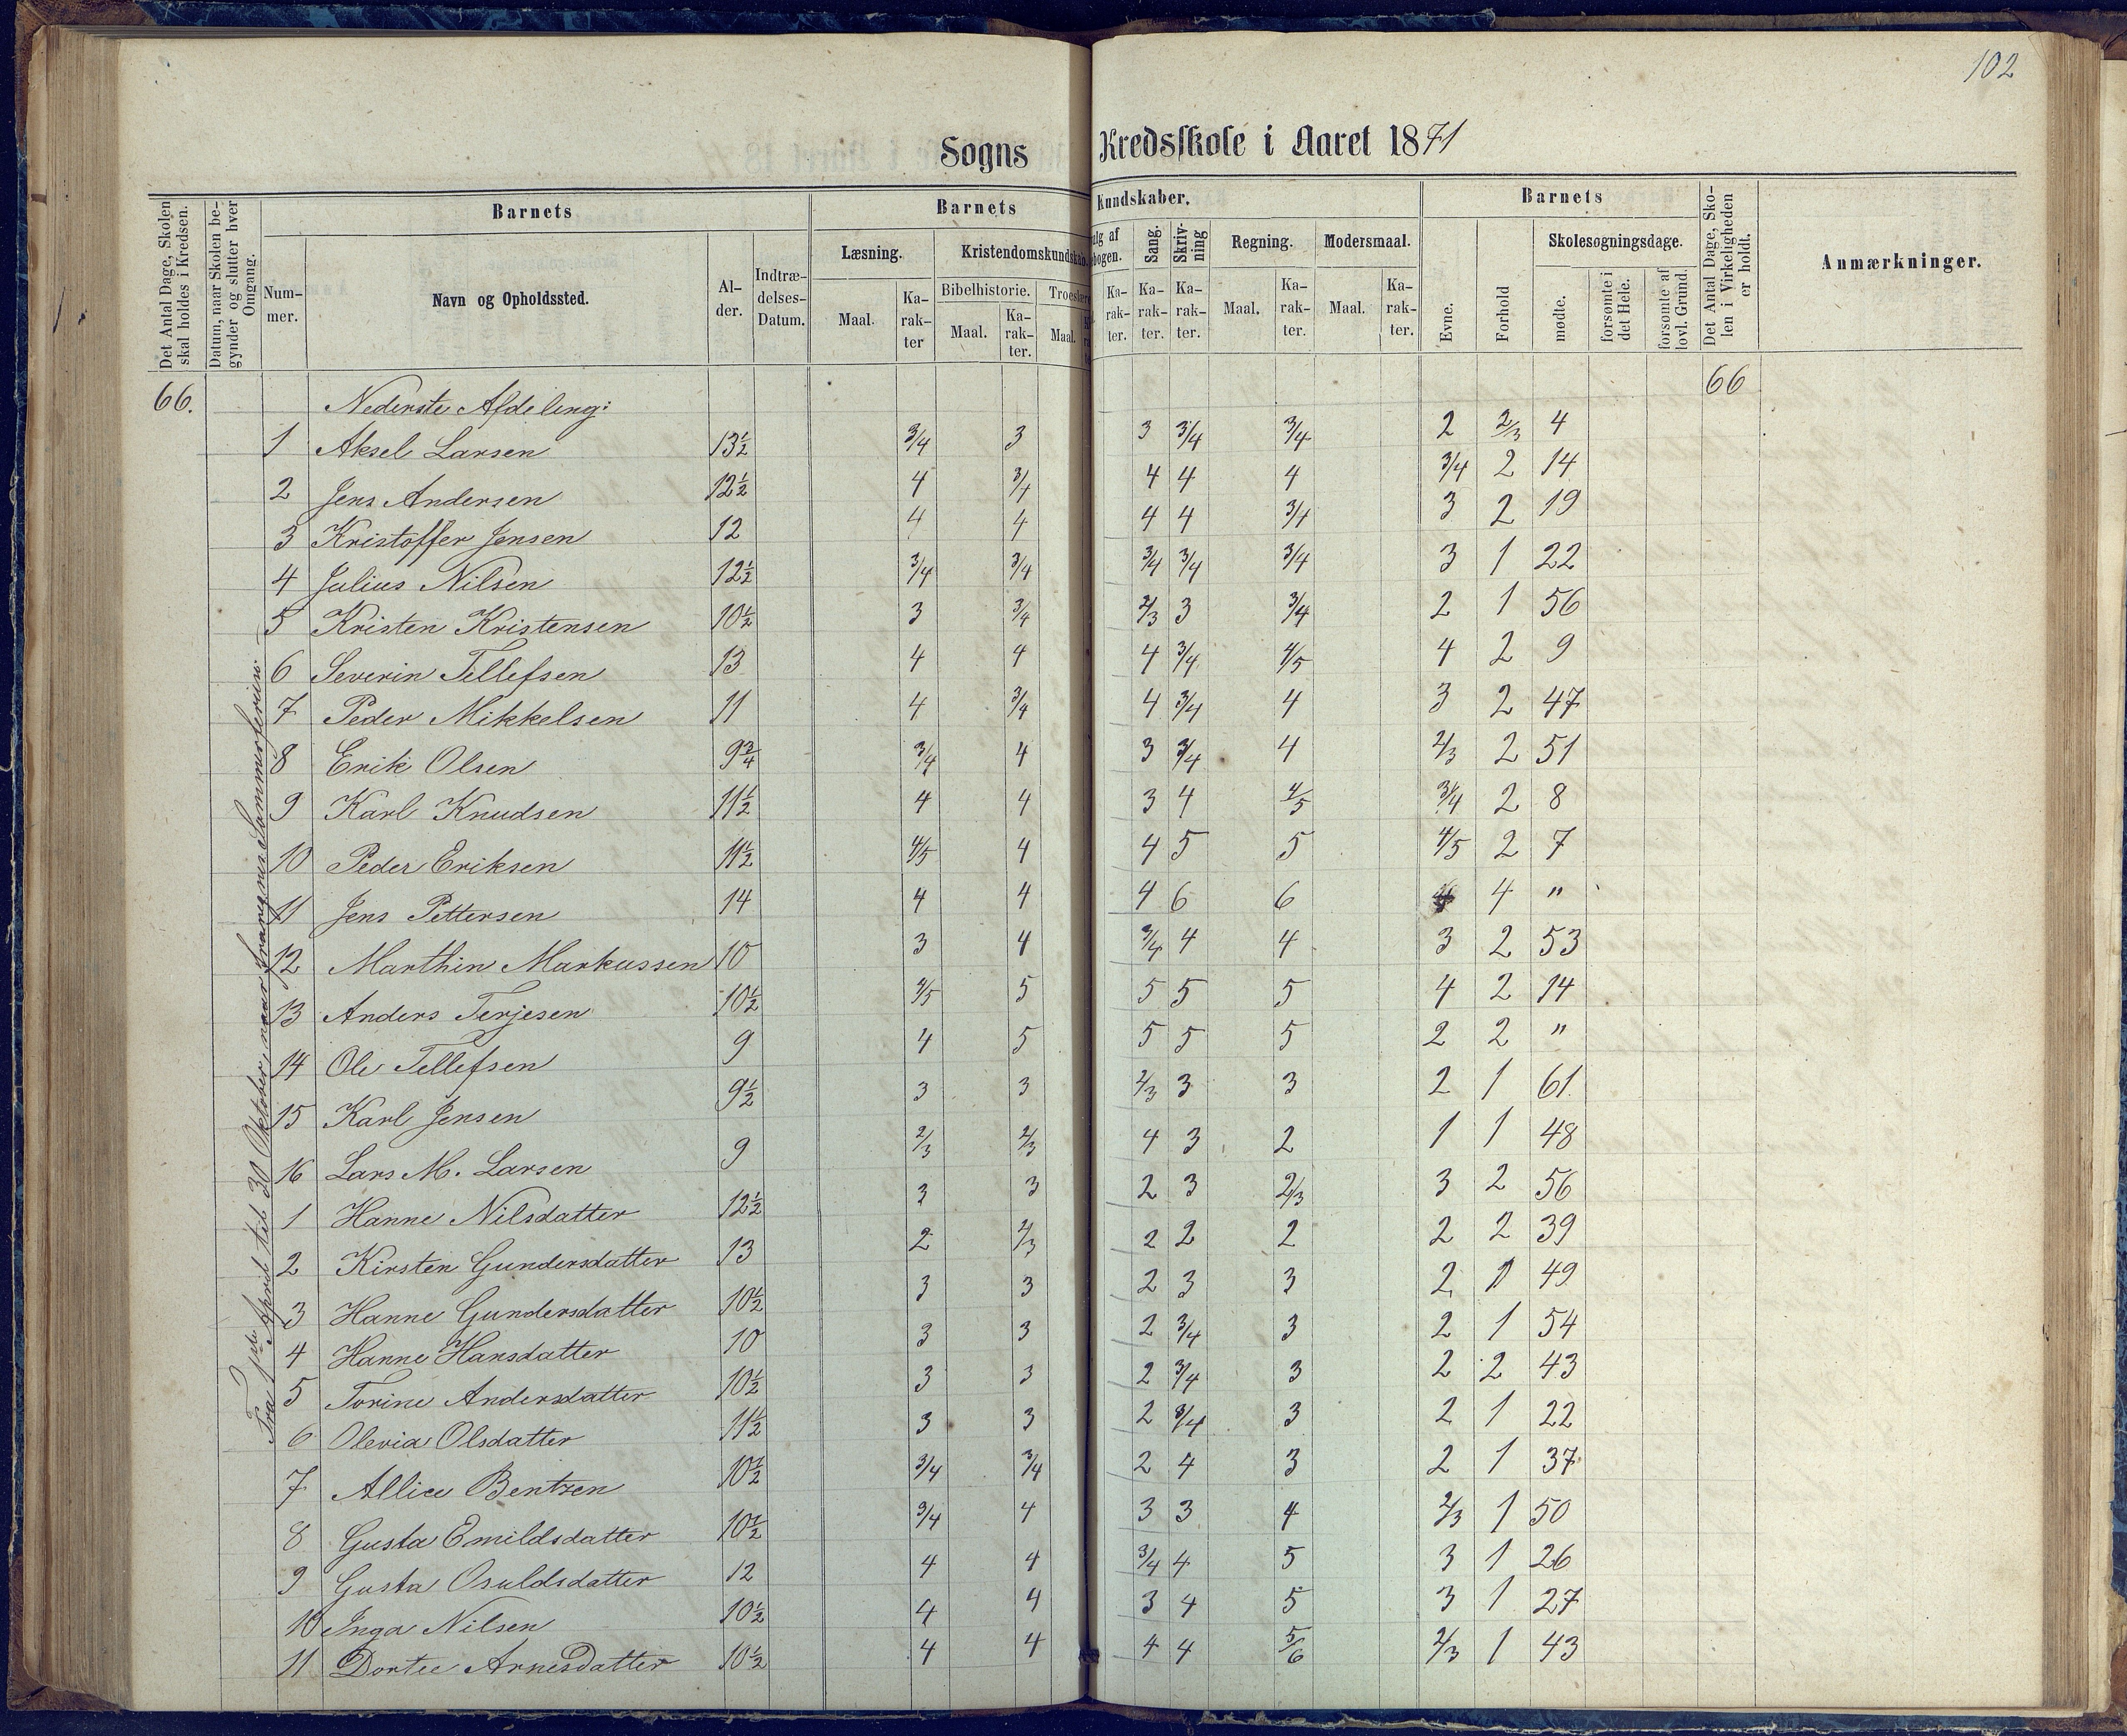 102
Sogns Kredsskole i Aaret 1871
Det Antal Dage, Skolen skal holdes i Kredsen.
Datum, naar Skolen begynder og slutter hver Omgang.
Barnets
Nummer.
Navn og Opholdssted.
Alder.
Indtrædelses-Datum.
Barnets Kundskaber.
Læsning.
Maal.
Karakter
Kristendomskundskab.
Bibelhistorie.
Maal.
Karakter.
Maal.
Sang.
Skrivning
Karakter. Karakter. Karakter.
Regning.
Maal. Karakter.
Modersmaal.
Maal. Karakter.
Barnets
Evne.
Forhold
Skolesøgningsdage.
mødte.
forsømte i det Hele.
forsømte af lovl. Grund.
Det Antal Dage, Skolen i Virkeligheden er holdt.
Anmærkninger.
66. Nederste Afdeling: 66
1 Aksel Larsen 13½ 3/4 3 3 3/4 3/4 2 2/3 4
2 Jens Andersen 12½ 4 3/4 4 4 4 3/4 2 14
3 Kristoffer Jensen 12 4 4 4 4 3/4 3 2 19
4 Julius Nilsen 12½ 3/4 3/4 3/4 3/4 3/4 3 1 22
5 Kristen Kristensen 10½ 3 3/4 2/3 3 3/4 2 1 56
6 Severin Tellefsen 13 4 4 4 3/4 4/5 4 2 9
7 Peder Mikkelsen 11 4 3/4 4 3/4 4 3 2 47
8 Erik Olsen 9¾ 3/4 4 3 3/4 4 2/3 2 51
9 Karl Knudsen 11½ 4 4 3 4 4/5 3/4 2 8
10 Peder Eriksen 11½ 4/5 4 4 5 5 4/5 2 7
11 Jens Pettersen 14 4 4 4 6 6 4 "
12 Marthin Markussen 10 3 4 3/4 4 4 3 2 53
13 Anders Terjesen 10½ 4/5 5 5 5 5 4 2 14
14 Ole Tellefsen 9 4 5 5 5 5 2 2 "
15 Karl Jensen 9½ 3 3 2/3 3 3 2 1 61
16 Lars M. Larsen 9 2/3 2/3 4 3 2 1 1 48
1 Hanne Nilsdatter 12½ 3 3 2 3 2/3 3 2 56
2 Kirsten Gundersdatter 13 2 2/3 2 2 2 2 2 39
3 Hanne Gundersdatter 10½ 3 3 2 3 3 2 1 49
4 Hanne Hansdatter 10 3 3 2 3/4 3 2 1 54
5 Torine Andersdatter 10½ 3 3 2 3/4 3 2 2 43
6 Olevia Olsdatter 11½ 3 3 2 3/4 3 2 1 22
7 Allice Bentzen 10½ 3/4 3/4 2 4 3 2 1 37
8 Gusta Emildsdatter 10½ 3/4 4 3 3 4 2/3 1 50
9 Gusta Osuldsdatter 12 4 4 3/4 4 5 3 1 26
10 Inga Nilsen 10½ 4 4 3 4 5 3 1 27
11 Dortee Arnesdatter 10½ 4 4 4 4 5/6 2/3 1 43
Fra 1ste April til 30 Oktober, naar fraregnes Sommerferien.